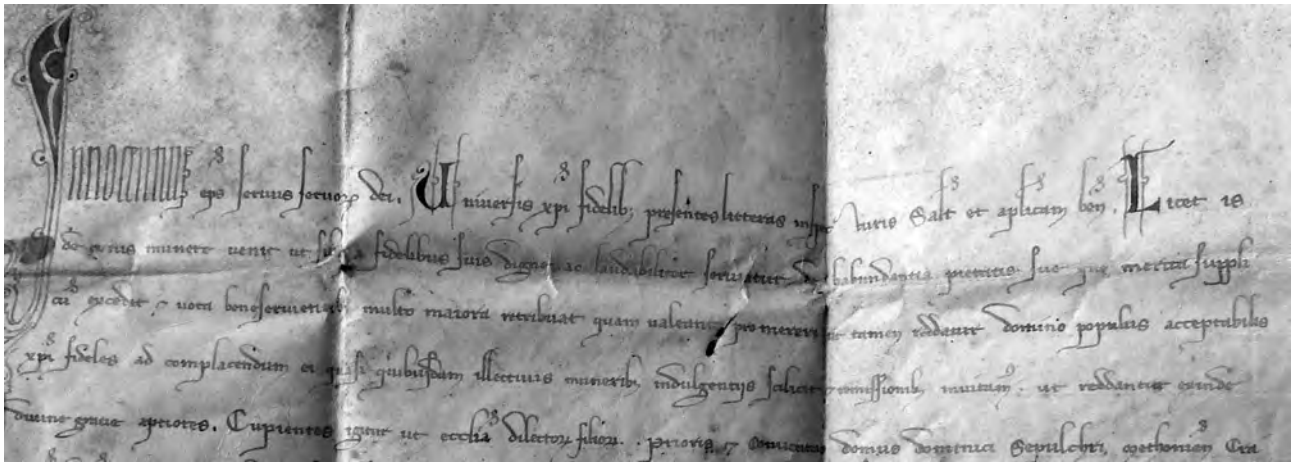 Innocentius eps servus servorꝝ dei. Universis xpi fidelibꝫ presentes litteras inspecturis Salt et aplicam ben. Licet is
de cuius munere venit ut sibi a fidelibus suis digne ac laudabiliter serviatur de habundantia pietatis sue que merita suppli
cū excedit ⁊ vota bene servientibꝫ multo maiora retribuat quam valeant promereri tamen reddere domino populū acceptabilē
xpi fideles ad complacendum ei quasi quibusdam illectivis muneribꝫ indulgentijs scilicet ⁊ remissionibꝫ invitamꝰ. ut reddantur exinde
divine gratie aptiores. Cupientes igitur ut ecclia dilectorꝝ filiorꝝ . . prioris ⁊ Conventus domus dominici Sepulchri,